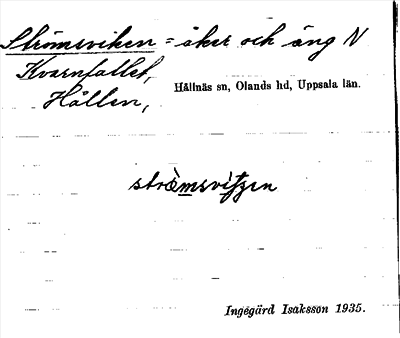 Strömsviken = åker och äng N
Kvarnfallet,
Hållen,
Hållnäs sn, Olands hd, Uppsala län.
Ingegärd Isaksson 1935.